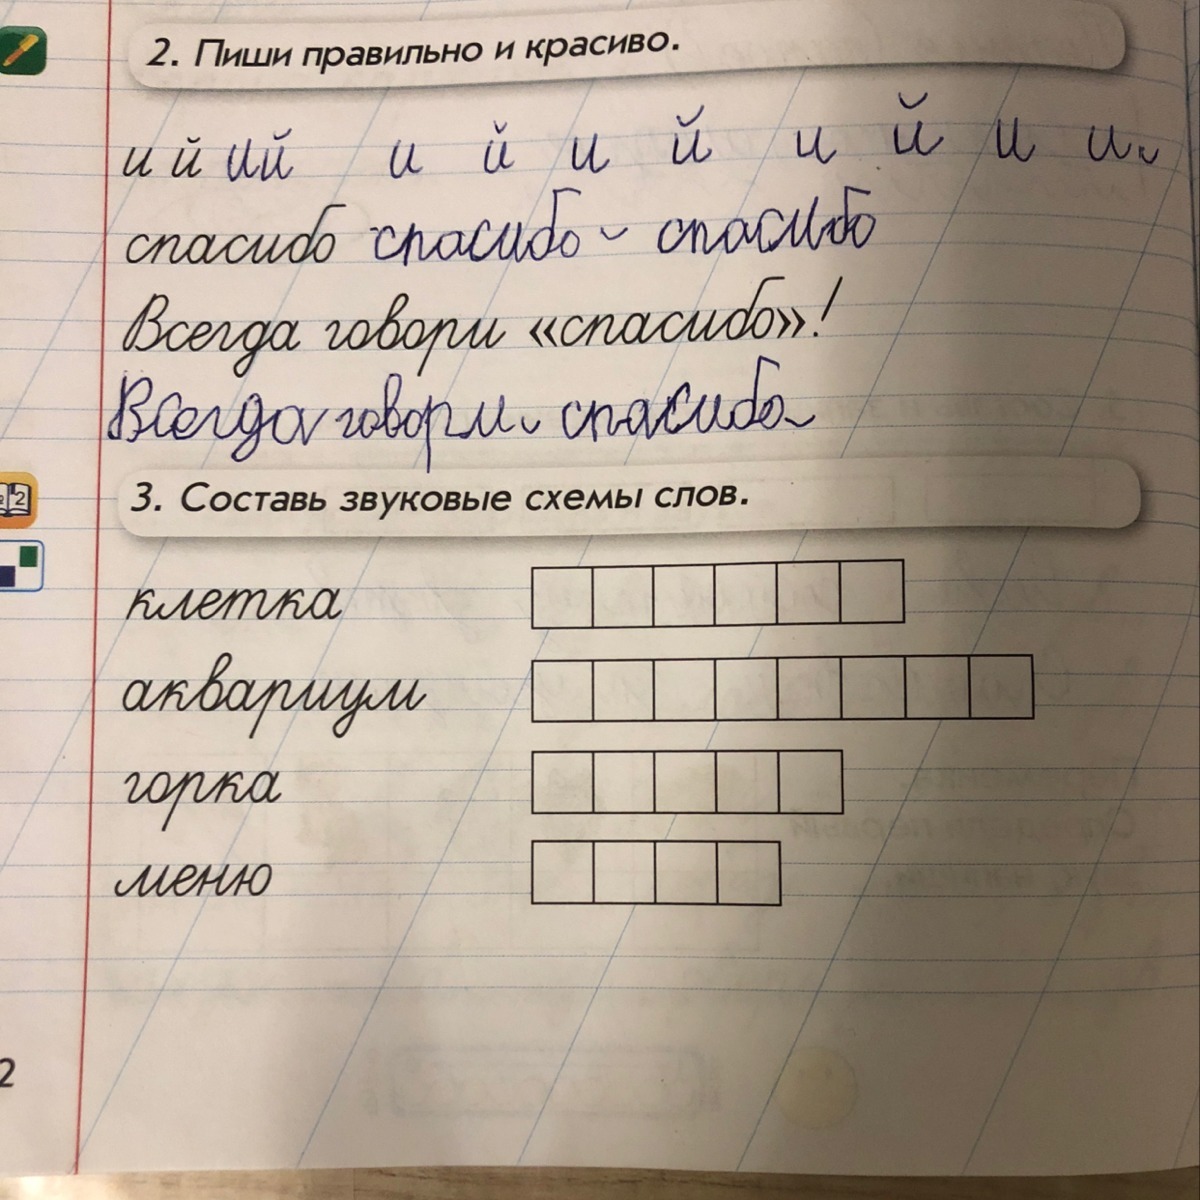 2. Пиши правильно и красиво.
и й ий и й и й и й и и
спасибо спасибо спасибо
Всегда говори «спасибо»!
Всегда говори спасибо
2
3. Составь звуковые схемы слов.
клетка
аквариум
горка
меню
2